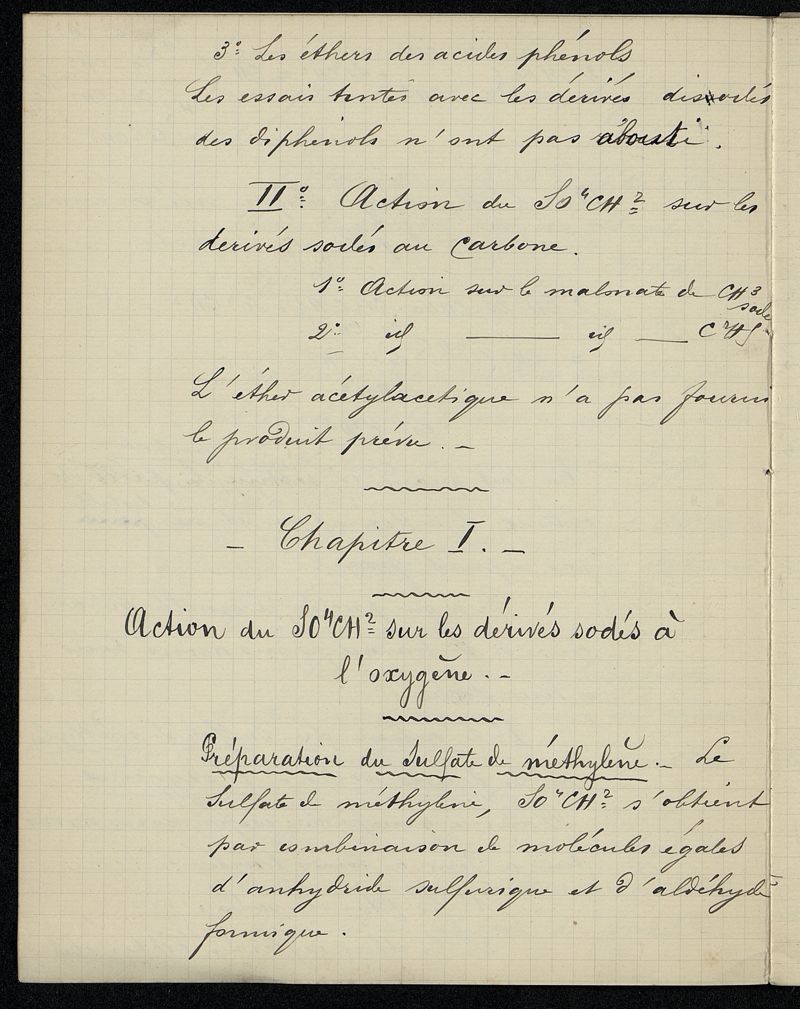 3º Les éthers des acides phénols
Les essais tentés avec les dérivés disodés
des diphénols n'ont pas abouti.
IIº Action du SO⁴CH² sur les
derivés sodés au Carbone.
1º Action sur le malonate de CH³
sodé
2º id ——— id —— C²H⁵
L'éther acétylacetique n'a pas fourni
le produit prévu. –
– Chapitre I. –
Action du SO⁴CH² sur les dérivés sodés à
l'oxygène. –
Préparation du Sulfate de méthylène. – Le
Sulfate de méthylène, SO⁴CH² s'obtient
par combinaison de molécules égales
d'anhydride sulfurique et d'aldéhyde
formique.